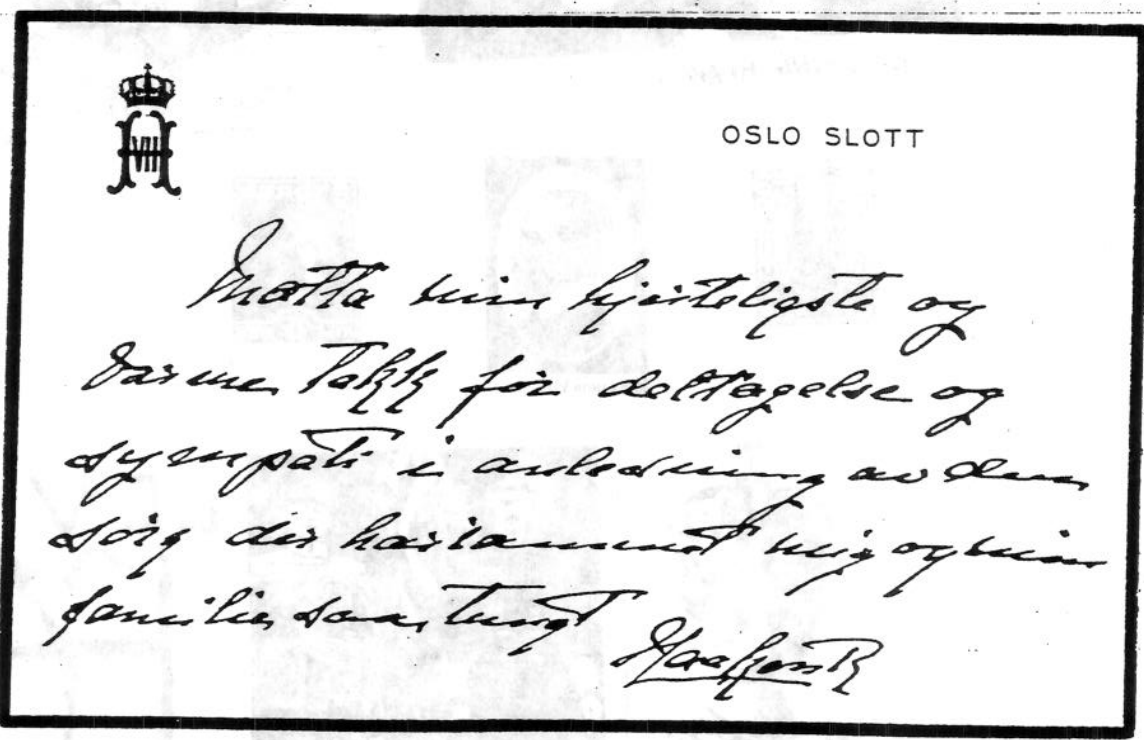 H VII
OSLO SLOTT
Motta min hjerteligste og
varme Takk for deltagelse og
sympati i anledning av den
sorg der har rammet mig og min
familie saa tungt
Haakon R